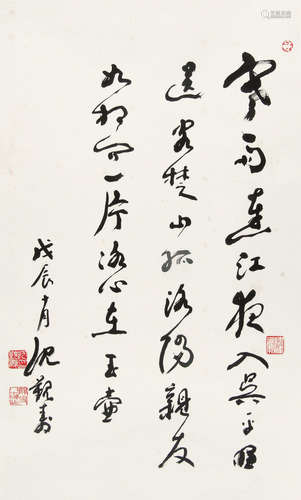 寒雨連江夜入吳平明
送客楚山孤洛陽親友
如相問一片冰心在玉壺
戊辰十月沈觀壽